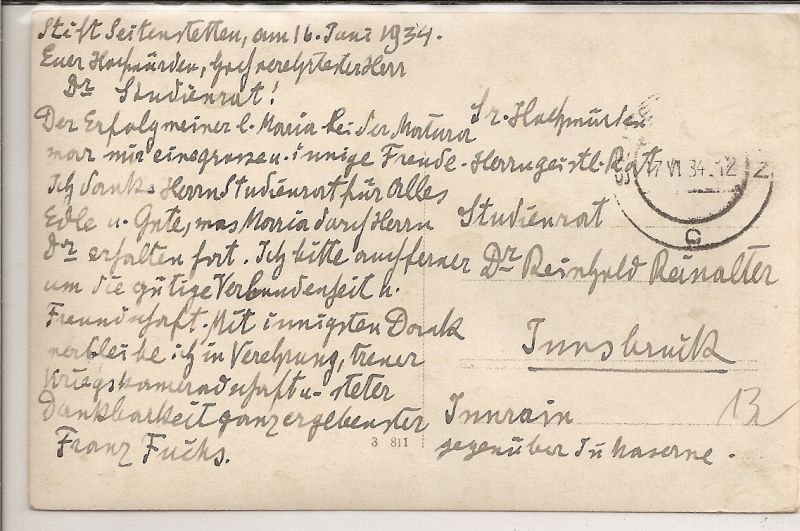 Stift Seitenstetten, am 16. Juni 1934.
Euer Hochwürden, hochverehrtester Herr
Dr Studienrat!
Der Erfolg meiner l. Maria bei der Matura
war mir eine grosse u. innige Freude.
Ich danke Herrn Studienrat für alles
Edle u. Gute, was Maria durch Herrn
Dr erhalten hat. Ich bitte auch ferner
um die gütige Verbundenheit u.
Freundschaft. Mit innigsten Dank
verbleibe ich in Verehrung, treuer
Kriegskameradschaft u. steter
Dankbarkeit ganz ergebenster
Franz Fuchs.
Sr. Hochwürden
Herrn geistl. Rat
Studienrat
Dr Reinhold Reinalter
Innsbruck
Innrain
gegenüber
17 VI 34 12
C
13
3 811